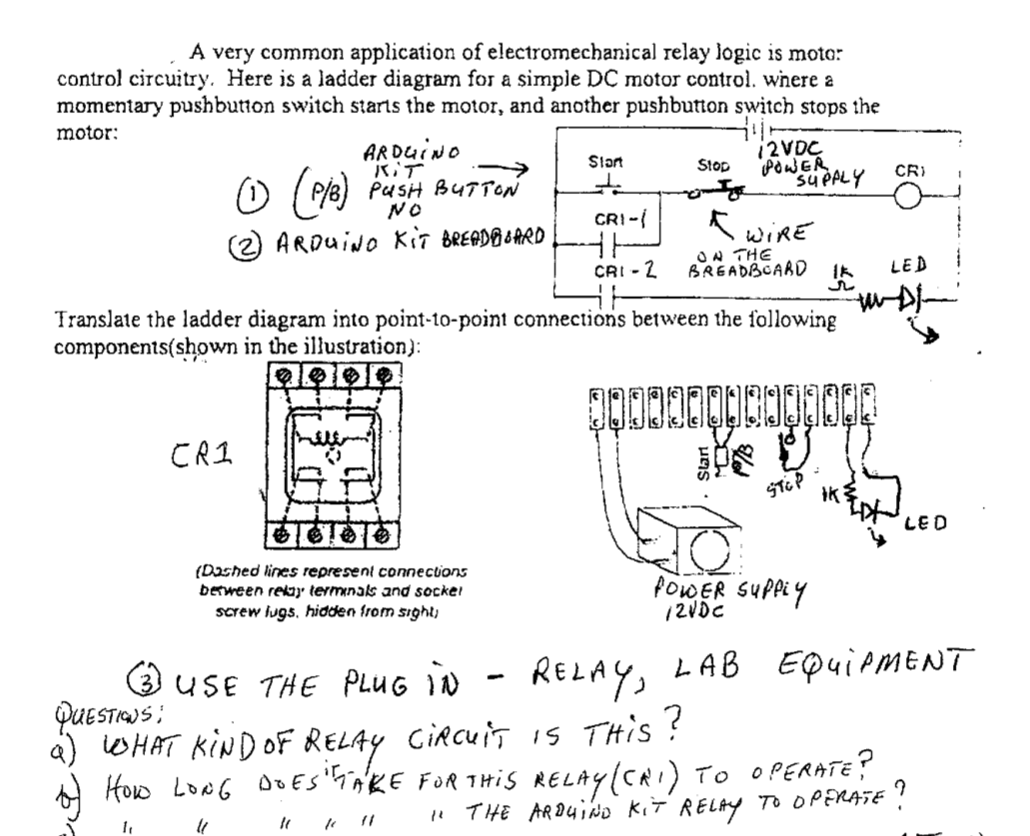 A very common application of electromechanical relay logic is motor
control circuitry. Here is a ladder diagram for a simple DC motor control, where a
momentary pushbutton switch starts the motor, and another pushbutton switch stops the
motor:
ARDUINO
KIT
① (P/B) PUSH BUTTON
NO
② ARDUINO KIT BREADBOARD
12VDC
POWER
SUPPLY
Start
Stop
CR1
CR1-1
WIRE
ON THE
BREADBOARD
CR1-2
1K
Ω
LED
Translate the ladder diagram into point-to-point connections between the following
components(shown in the illustration):
CR1
Start
P/B
STOP
1K
LED
(Dashed lines represent connections
between relay terminals and socket
screw lugs, hidden from sight)
POWER SUPPLY
12VDC
③ USE THE PLUG IN - RELAY, LAB EQUIPMENT
QUESTIONS:
a) WHAT KIND OF RELAY CIRCUIT IS THIS?
b) HOW LONG DOES IT TAKE FOR THIS RELAY (CR1) TO OPERATE?
" " " " " " THE ARDUINO KIT RELAY TO OPERATE?